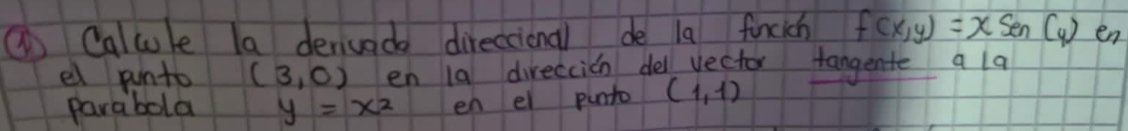 ① Calcule la derivada direccional de la función f(x,y) = x Sen (y) en
el punto (3,0) en la dirección del vector tangente a la
parabola y = x² en el punto (1,1)